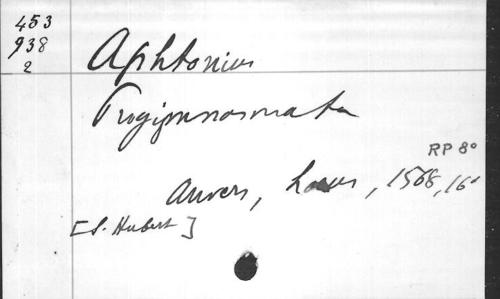 453
938
2
Aphtonius
Progymnasmata
RP 8°
Anvers, 1568, 16°
[S. Hubert]